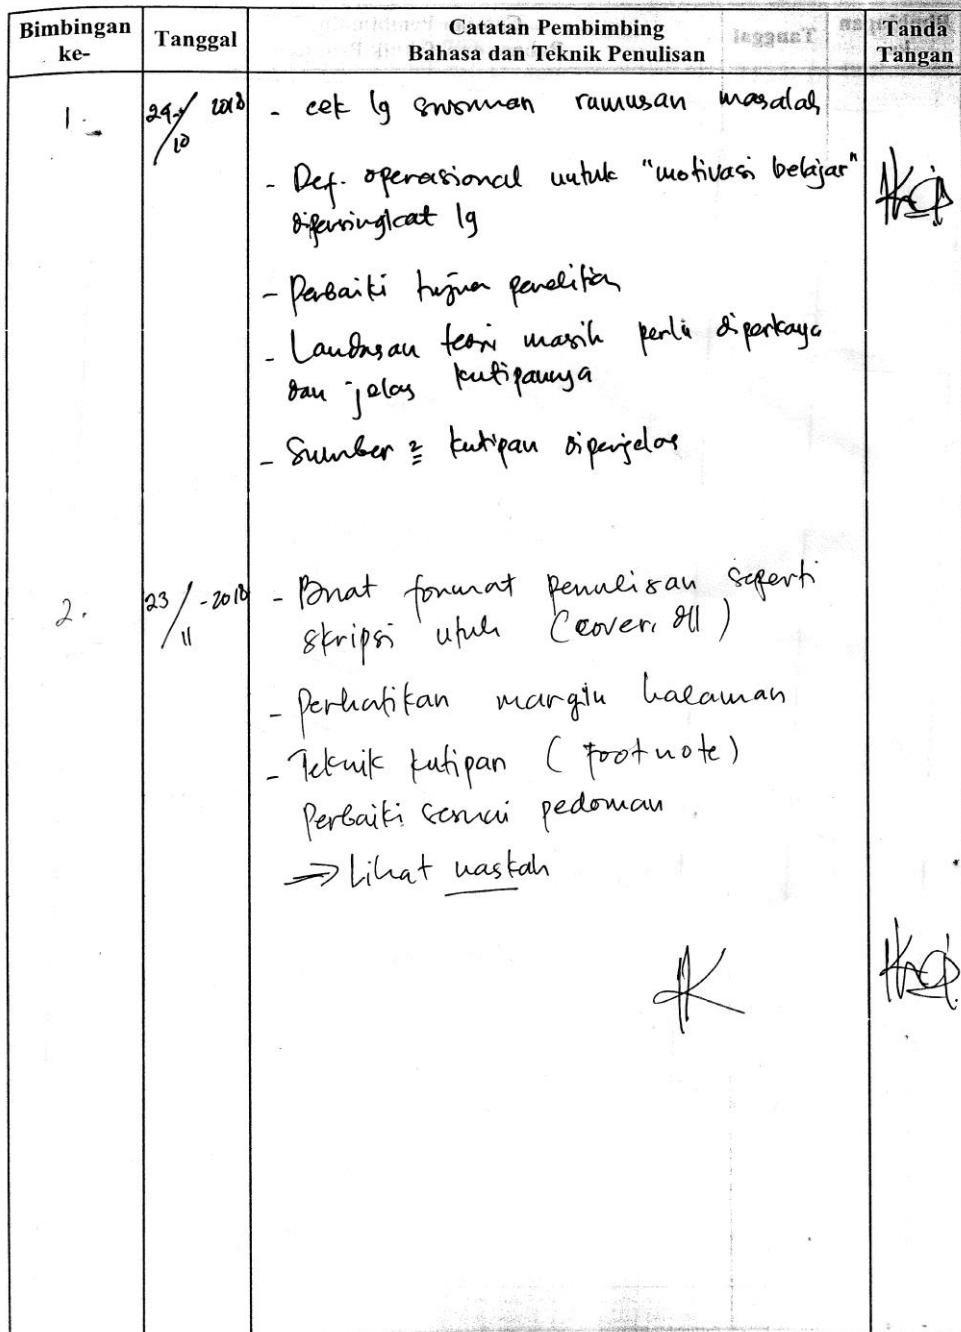 Bimbingan ke-
Tanggal
Catatan Pembimbing
Bahasa dan Teknik Penulisan
Tanda Tangan
1.
24/10 2018
- cek lg susunan rumusan masalah
- Def. operasional untuk "motivasi belajar"
dipersingkat lg
- Perbaiki tujuan penelitian
- Landasan teori masih perlu diperkaya
dan jelas kutipannya
- Sumber2 kutipan diperjelas
2.
23/11 -2018
- Buat format penulisan seperti
skripsi utuh (cover, dll)
- Perhatikan margin halaman
- Teknik kutipan (Footnote)
Perbaiki sesuai pedoman
⇒ Lihat naskah